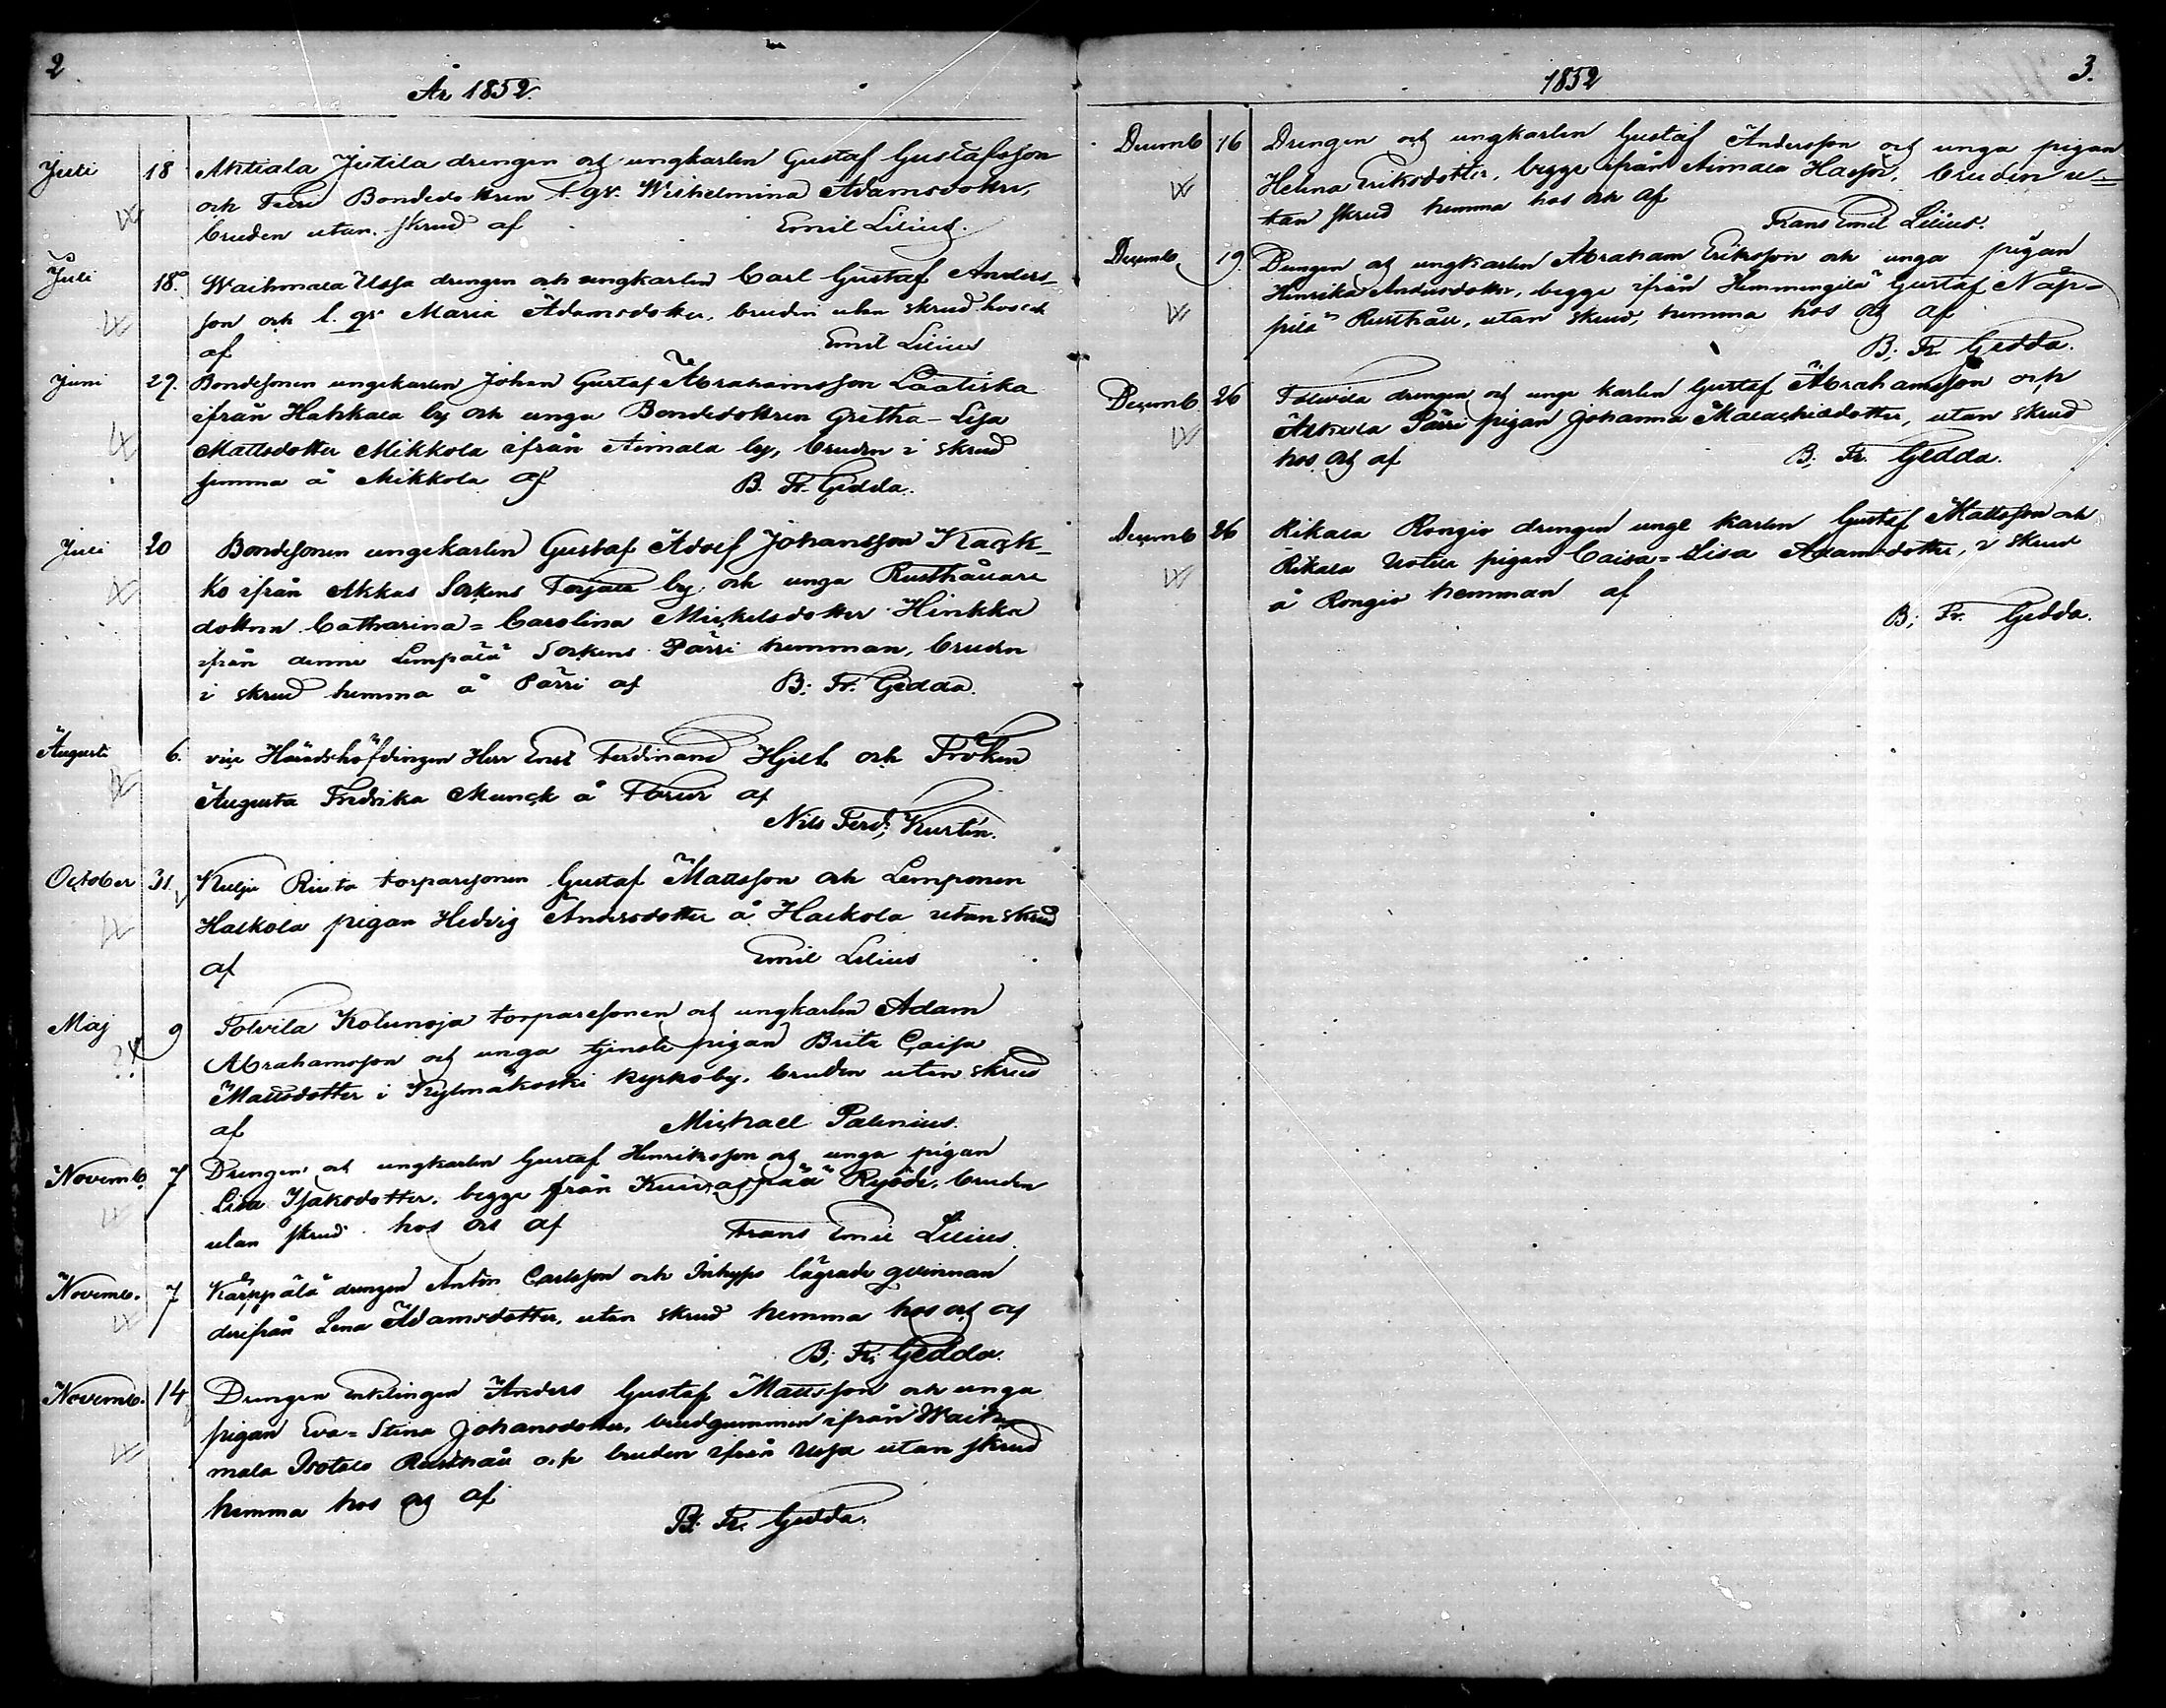 2
År 1852.
Juli 18 Ahtiala Jutila drengen och ungkarlen Gustaf Gustafsson
och Bondedottren l. qv. Wilhelmina Adamsdotter,
bruden utan skrud af Emil Lilius.
Juli 18. Waihmala Ussa drengen och ungkarlen Carl Gustaf Anders-
son och l. qv. Maria Adamsdotter, bruden utan skrud hos och
af Emil Lilius
Juni 29. Bondesonen ungekarlen Johan Gustaf Abrahamsson Laatiska
ifrån Hakkala by och unga Bondedottren Gretha-Lisa
Mattsdotter Mikkola ifrån Aimala by, bruden i skrud
hemma å Mikkola af B. Fr. Gedda.
Juli 20 Bondesonen ungekarlen Gustaf Adolf Johansson Kack-
ko ifrån Akkas Sockens by, och unga Rusthållare
dottren Catharina=Carolina Mickelsdotter Hinkka
ifrån denne Lempälä Sockens Pärri hemman, bruden
i skrud hemma å Pärri af B: Fr. Gedda.
Augusti 6. vice Häradshöfdingen Herr Ernst Ferdinand Hjelt och Fröken
Augusta Fredrika Munck å af
Nils Ferd: Kurtén.
October 31. Kulju Rusta torparesonen Gustaf Mattsson och Lemponen
Halkola pigan Hedvig Andersdotter å Halkola utan skrud
af Emil Lilius
Maj 9 Tolvila Kolunoja torparesonen och ungkarlen Adam
Abrahamsson och unga tjenste pigan Brita Caisa
Mattsdotter i Kylmäkoski kyrkoby, bruden utan skrud
af Michael Palenius.
Novemb. 7 Drengen och ungkarlen Gustaf Henriksson och unga pigan
Lisa Isaksdotter, begge från Kuivaspää Ryöde, bruden
utan skrud hos och af Frans Emil Lilius.
Novemb. 7 Kärppälä drengen Anton Carlsson och Inhyses lägrade qvinnan
derifrån Lena Adamsdotter, utan skrud hemma hos och af
B; Fr; Gedda.
Novemb. 14 Drengen Enklingen Anders Gustaf Mattsson och unga
pigan Eva=Stina Johansdotter, brudgummen ifrån Waih
mala Isotalo Rusthåll och bruden ifrån Ussa utan skrud
hemma hos och af
B. Fr. Gedda.
1852 3.
Decemb 16 Drengen och ungkarlen Gustaf Andersson och unga pigan
Helena Eriksdotter, begge ifrån Aimala, bruden u=
tan skrud hemma hos och af
Frans Emil Lilius.
Decemb 19. Drengen och ungkarlen Abraham Eriksson och unga pigan
Henrika Andersdotter, begge ifrån Hemmingilä Gustaf Näp=
pilä Rusthåll, utan skrud, hemma hos och af
B; Fr. Gedda.
Decemb 26 Tolvila drengen och unge karlen Gustaf Abrahamsson och
Pärri pigan Johanna Malachiasdotter, utan skrud
hos och af B; Fr. Gedda.
Decemb 26 Rikala Rongio drengen unge karlen Gustaf Mattsson och
Rikala pigan Caisa=Lisa Adamsdotter, i skrud
å Rongio hemman af
B; Fr. Gedda.